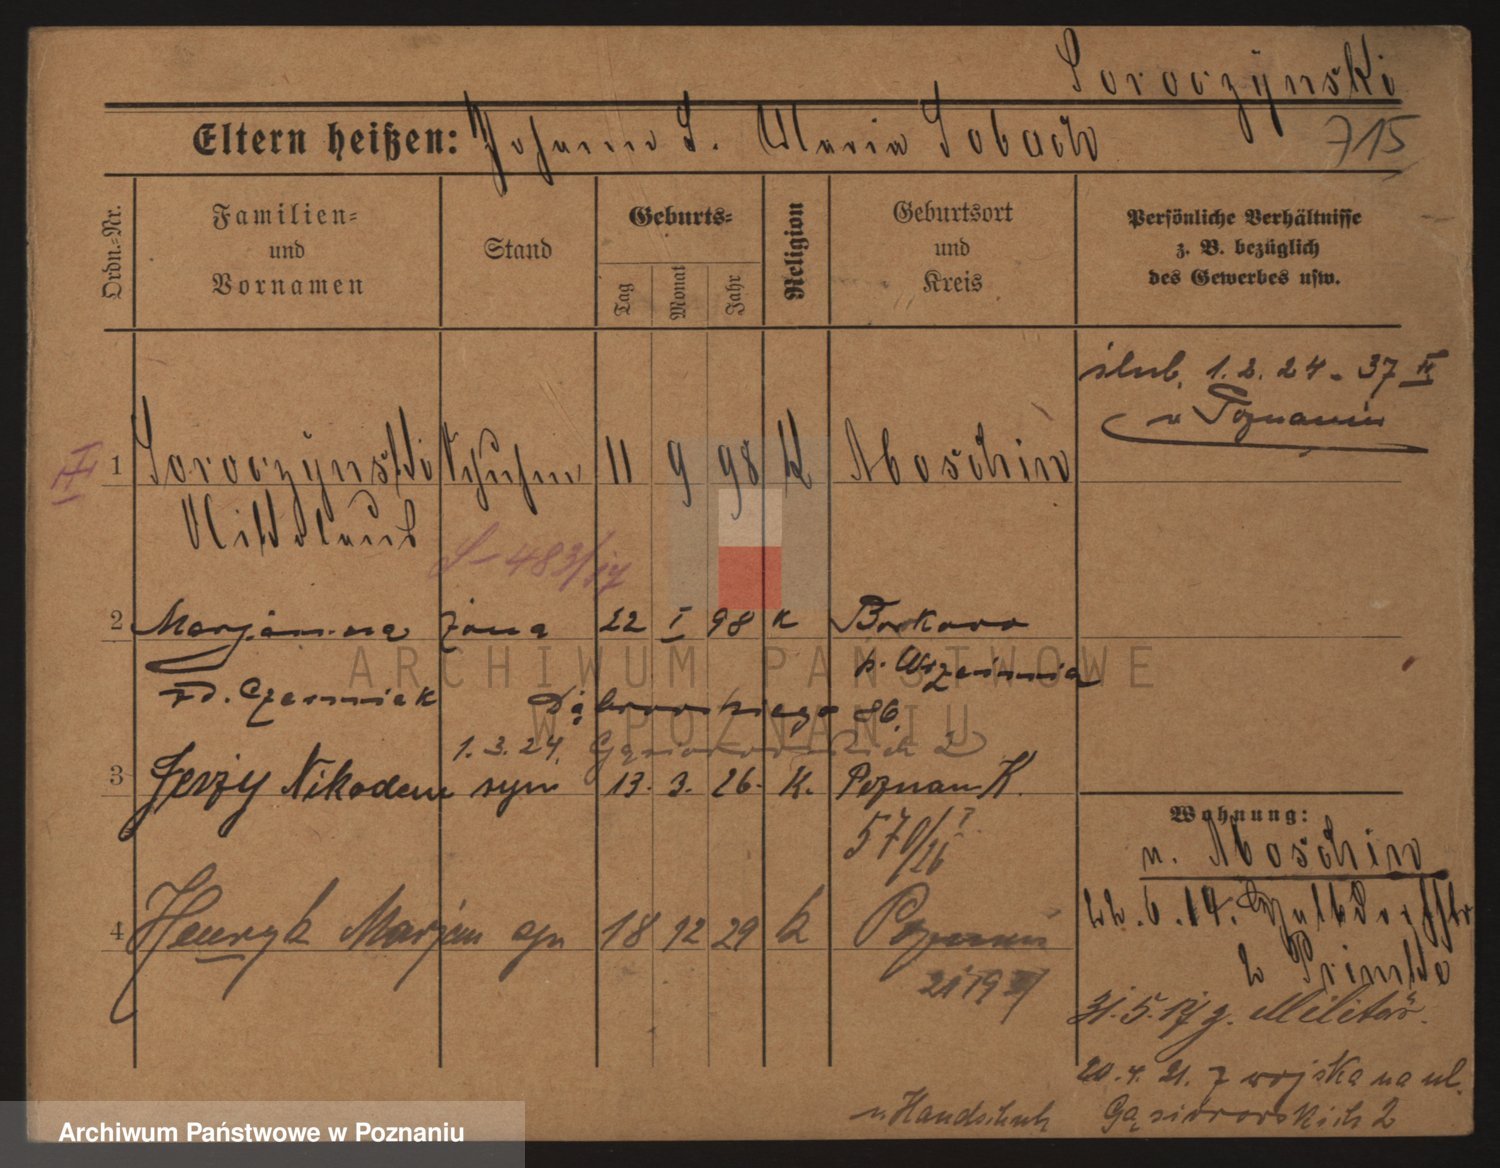 Soroczynski
Eltern heißen: Johann S. Maria Sobach
715
Ordn.-Nr.
Familien- und Vornamen
Stand
Geburts-
Tag
Monat
Jahr
Religion
Geburtsort und Kreis
Persönliche Verhältnisse
z. B. bezüglich
des Gewerbes usw.
ślub. 1.2.24 - 37 II
w Poznaniu
1 Soroczynski 11 9 98 K Moschin
Ladislaus
S-483/17
2 Marjanna żona 22 I 98 K Borkowo
p. Września
zd. Czerniak Dąbrowskiego 86.
1.3.24. Gąsiorowskich 2
3 Jerzy Nikodem syn 13. 3. 26. K. Poznan K.
570/26
4 Henryk Marjan syn 18 12 29 k Poznań
Wohnung:
n. Moschin
22.6.14.
b Prinke
31.5.17 z. Militär.
20.4.21. z wojska na ul.
Gąsiorowskich 2
n Handschuh
ARCHIWUM PAŃSTWOWE
W POZNANIU
Archiwum Państwowe w Poznaniu